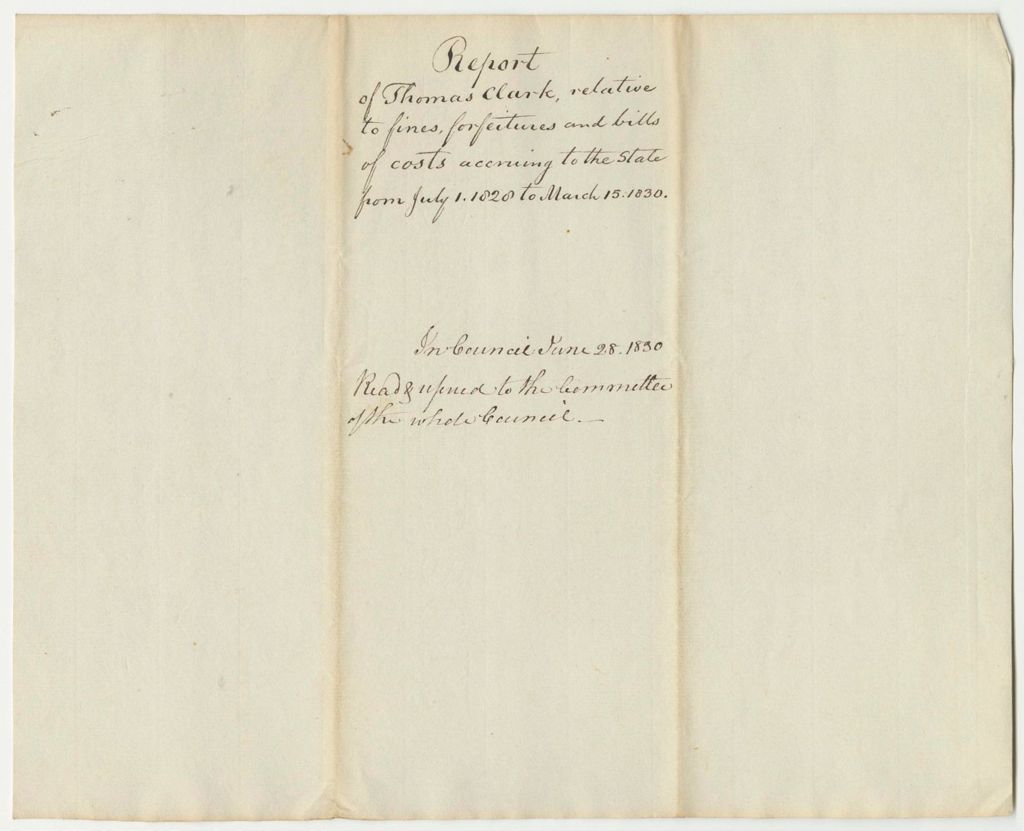 Report
of Thomas Clark, relative
to fines, forfeitures and bills
of costs accruing to the State
from July 1. 1828 to March 15. 1830.
In Council June 28. 1830
Read & referred to the Committee
of the whole Council. —